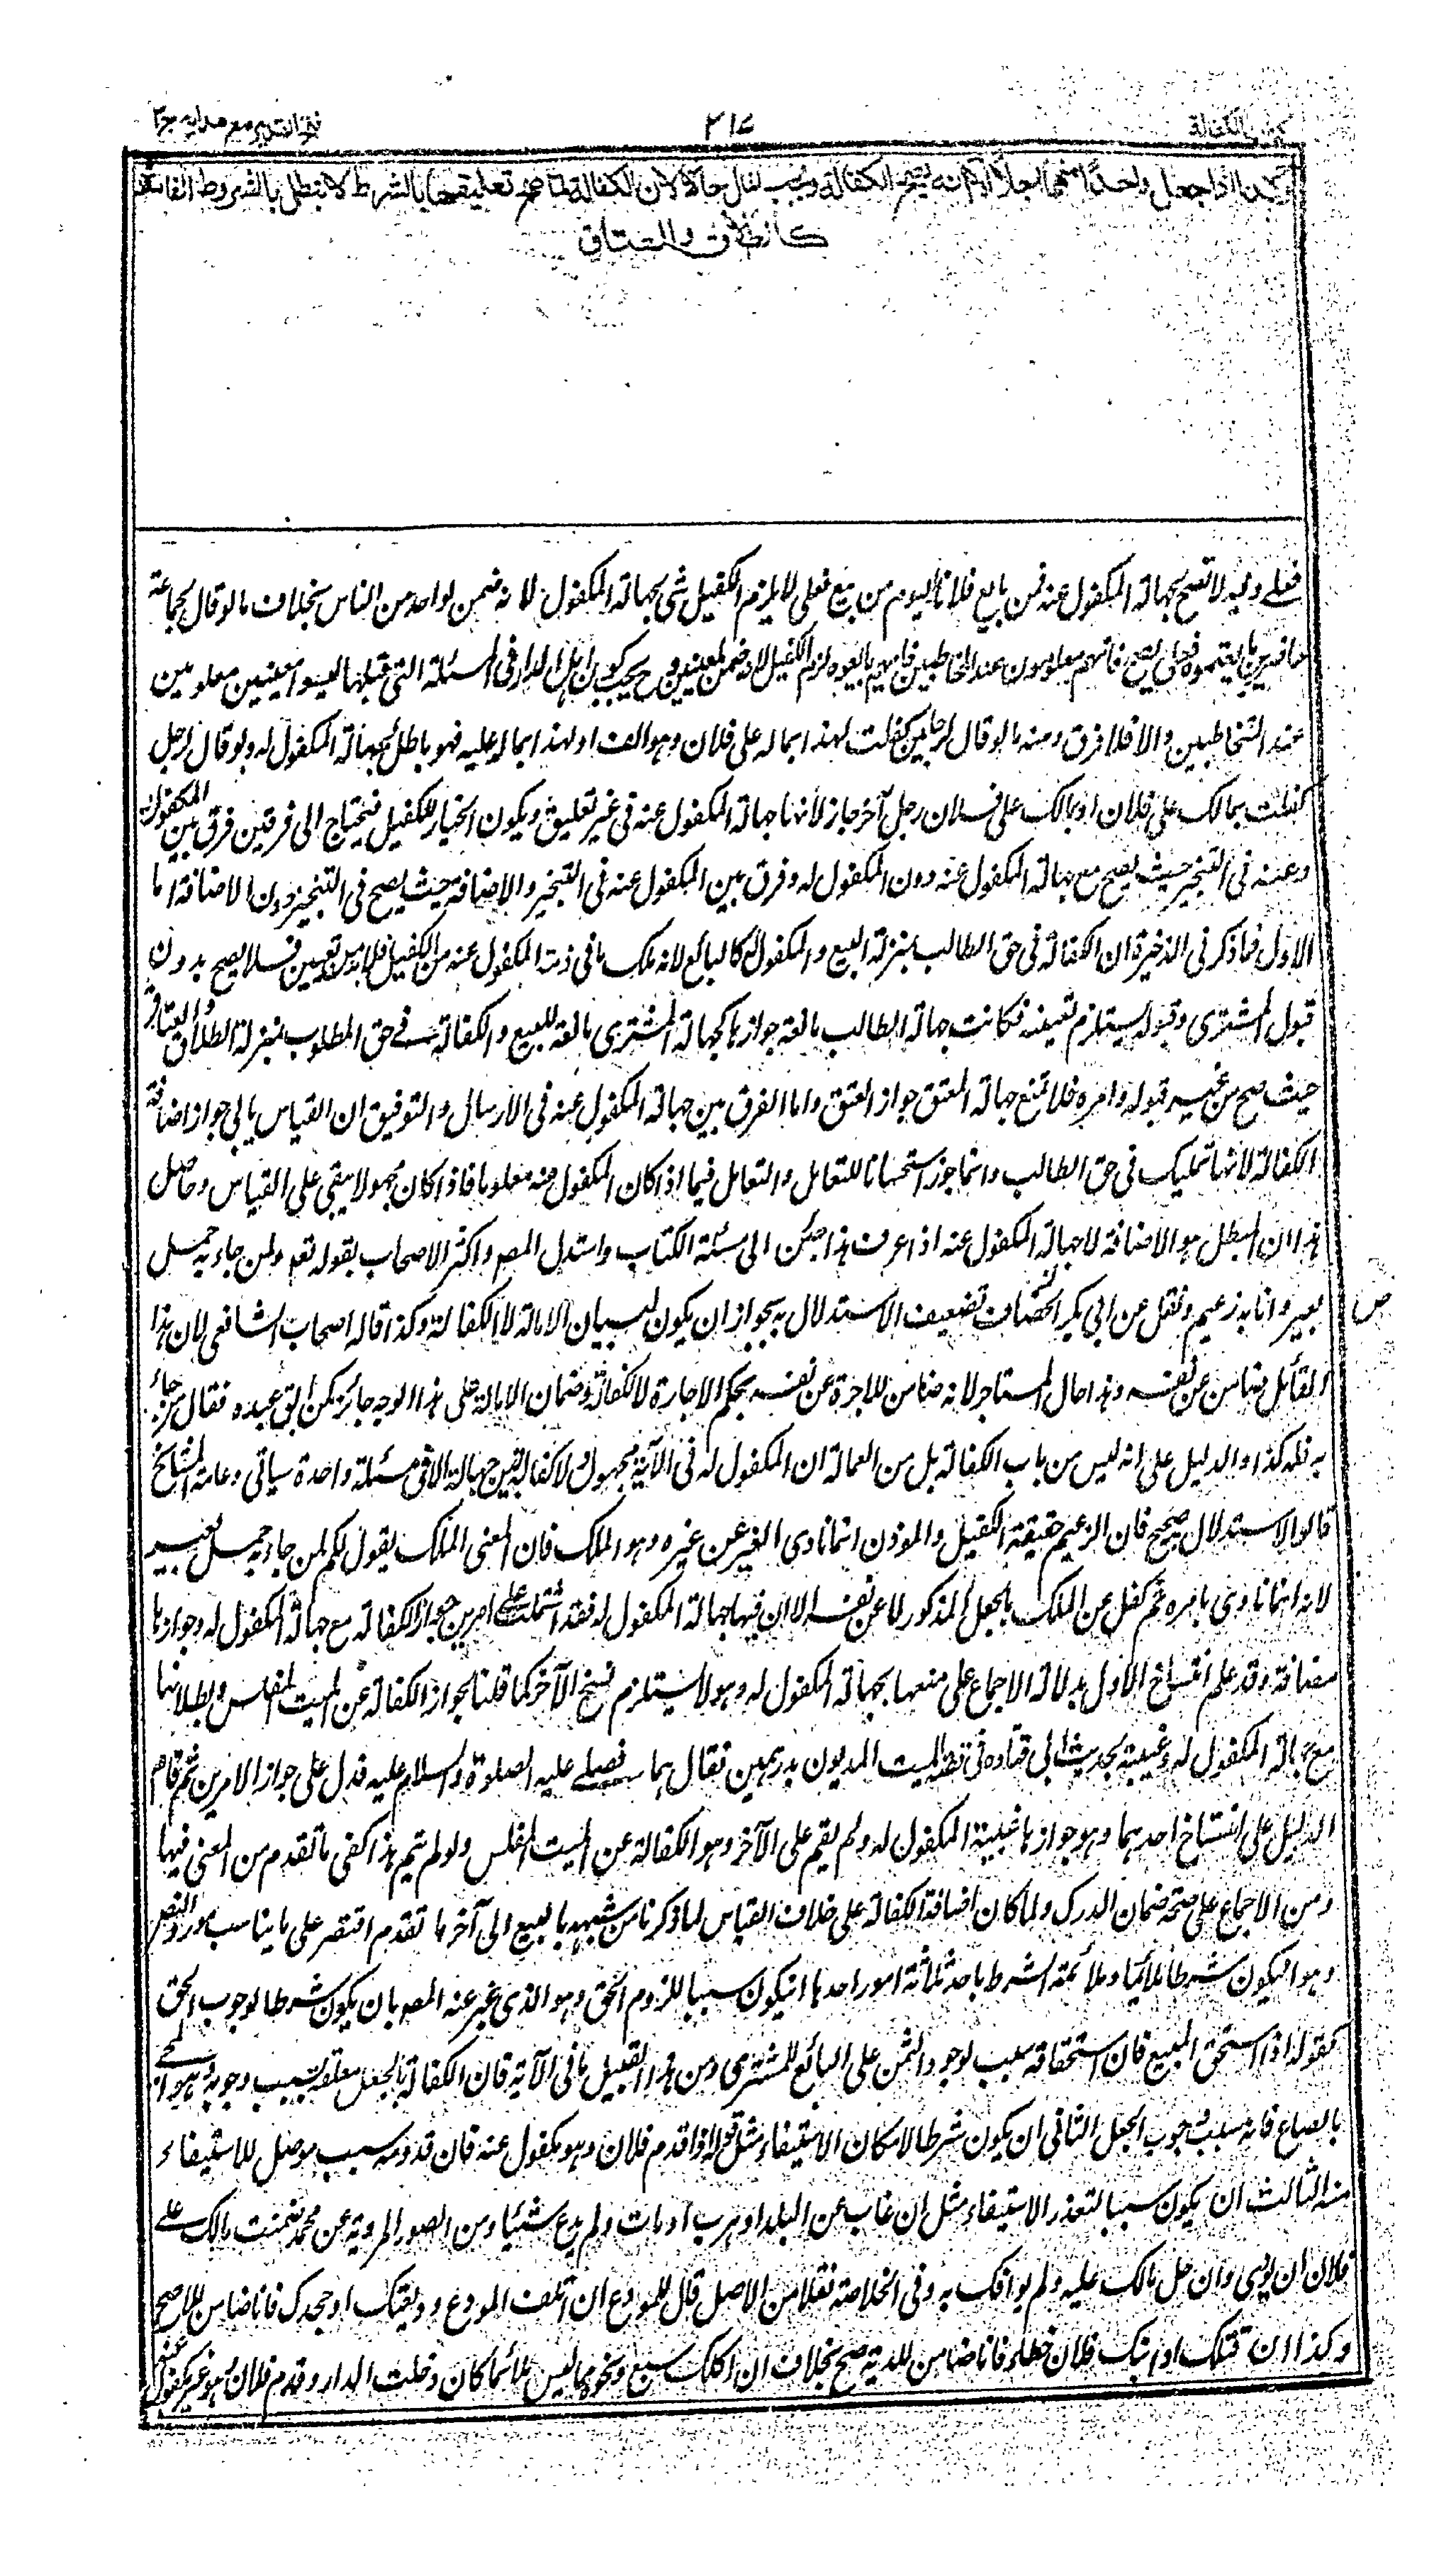 كتاب الكفالة
٢١٧
فتح القدير مع هدايه ج٣
وكذا اذا جعل واحدا منهما اجلا الا انه يصح الكفالة ويجب المال حالا لان الكفالة لما صح تعليقها بالشرط لا تبطل بالشروط الفاسدة
كالطلاق والعتاق
فعلے وليه لا تصح بجهالة المكفول عنه فمن بايع فلانا اليوم من بيع فعلى لا يلزم الكفيل شئ بجهالة المكفول لانه ضمن لواحد من الناس بخلاف ما لو قال لجماعة
حاضرين ما بايعتموه فعلى يصح فانهم معلومون عند المخاطبين فايهم بايعوه لزم الكفيل لانه ضمن لمعينين وح يجب كون اهل الدار فى المسئلة التى قبلها ليسوا معينين معلومين
عند المتخاطبين والا فلا فرق ومنه ما لو قال لرجلين كفلت لهذا بماله على فلان وهو الف او لهذا بماله عليه فهو باطل لجهالة المكفول له ولو قال لرجل
كفلت بمالك على فلان او بمالك على فلان رجل آخر جاز لانها جهالة المكفول عنه فى غير تعليق ويكون الخيار للكفيل فيحتاج الى فرقين فرق بين المكفول له
وعنه فى التنجيز حيث يصح مع جهالة المكفول عنه دون المكفول له وفرق بين المكفول عنه فى التنجيز والاضافة حيث يصح فى التنجيز دون الاضافة اما
الاول فما ذكر فى الذخيرة ان الكفالة فى حق الطالب بمنزلة البيع والمكفول له كالبائع لانه يملك ما فى ذمة المكفول عنه من الكفيل فلا بد من تعيين فلا يصح بدون
قبول المشترى وقبوله يستلزم تعيينه فكانت جهالة الطالب مانعة جوازها كجهالة المشترى مانعة للبيع والكفالة فے حق المطلوب بمنزلة الطلاق والعتاق
حيث صح من غير قبوله وامره فلا تمنع جهالة المعتق جواز العتق واما الفرق بين جهالة المكفول عنه فى الارسال والتوفيق ان القياس يابى جواز اضافة
الكفالة لانها تمليك فى حق الطالب وانما جوز استحسانا للتعامل والتعامل فيما اذا كان المكفول عنه معلوما فاذا كان مجهولا يبقى على القياس وحاصل
هذا ان المبطل هو الاضافة لا جهالة المكفول عنه اذا عرفت هذا جئن الى مسئلة الكتاب واستدل المص واكثر الاصحاب بقوله تعم ولمن جاء به حمل
بعير وانا به زعيم ونقل عن ابى بكر الخصاف تضعيف الاستدلال به بجواز ان يكون لبيان الامالة لا الكفالة وكذا قاله اصحاب الشافعى لان هذا
القائل ضامن عن نفسه وهذا حال المستاجر لانه ضامن للاجرة عن نفسه بحكم الاجارة لا لكفالة وضمان الامالة على هذا الوجه جائز كمن ابق عبده فقال من جاء
به فله كذا والدليل على انه ليس من باب الكفالة بل من العمالة ان المكفول له فى الآية مجهول ولا كفالة وعامة المشايخ
قالوا الاستدلال صحيح فان الزعيم حقيقة الكفيل والموذن انما نادى الغير عن غيره وهو الملك فان المعنى الملك يقول لكم لمن جاء به حمل بعير
لانه انما نادى بامره ثم كفل عن الملك بالجعل المذكور لا عن نفسه الا ان فيها جهالة المكفول له فقد اشتملت على امرين جواز الكفالة مع جهالة المكفول له وجوازها
مضافة وقد علم انتساخ الاول بدلالة الاجماع على منعها بجهالة المكفول له وهو لا يستلزم نسخ الآخر كما قلنا بجواز الكفالة عن الميت المفلس وبطلانها
مع جهالة المكفول له وغيبته بحديث ابى قتادة فى قصة الميت المديون بدرهمين فقال هما علي فصلى عليه الصلوة والسلام عليه فدل على جواز الامرين ثم قام
الدليل على انتساخ احدهما وهو جوازها لغيبة المكفول له ولم يقم على الآخر وهو الكفالة عن الميت المفلس ولو لم يتم هذا كفى ما تقدم من المعنى فيها
ومن الاجماع على صحة ضمان الدرك ولما كان اضافة الكفالة على خلاف القياس لما ذكرنا من شبهه بالبيع الى آخر ما تقدم اقتصر على ما يناسب مورد النص
وهو ان يكون شرطا ملائما وملائمة الشرط باحد ثلاثة امور احدها ان يكون سببا للزوم الحق وهو الذى عبر عنه المص بان يكون شرطا لوجوب الحق
كقوله اذا استحق المبيع فان استحقاقه سبب لوجود الثمن على البائع للمشترى ومن هذا القبيل ما فى الآية فان الكفالة بالجعل معلقة بسبب وجوبه وهو المجئ
بالصاع فانه سبب وجوب الجعل الثانى ان يكون شرطا لامكان الاستيفاء مثل قوله اذا قدم فلان وهو مكفول عنه فان قدومه سبب موصل للاستيفاء
منه الثالث ان يكون سببا لتعذر الاستيفاء مثل ان غاب عن البلد او هرب او مات ولم يدع شيئا ومن الصور المروية عن محمد ضمنت مالك على
فلان ان توى وان حل مالك عليه ولم يوافك به وفى الخلاصة نقلا من الاصل قال للمودع ان اتلف المودع وديعتك او جحدك فانا ضامن لك صح
وكذا ان قتلك او ابنك فلان خطأ فانا ضامن للدية صح بخلاف ان اكلك سبع ونحوه مما ليس ملائما كان دخلت الدار وقدم فلان وهو غير مكفول عنه
ص